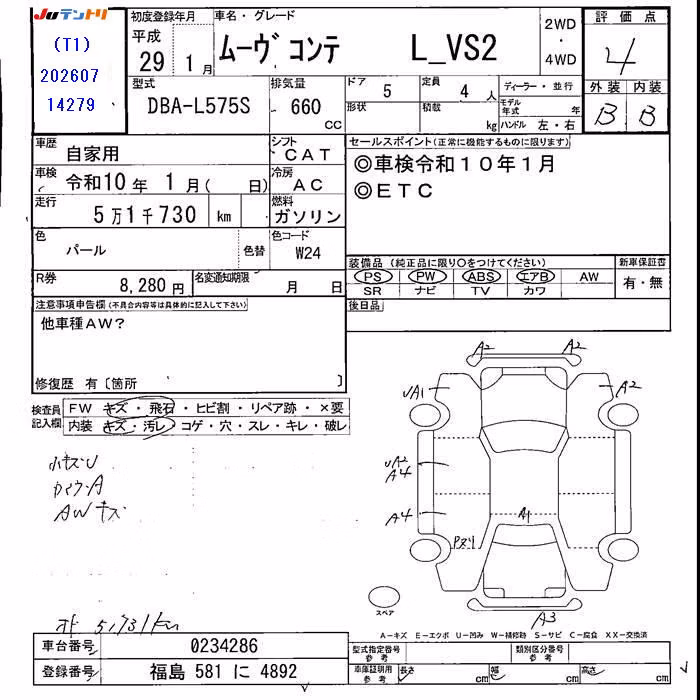 JUテントリ
(T1)
202607
14279
初度登録年月
平成
29 1月
車名・グレード
ムーヴ コンテ L_VS2
2WD
・
4WD
評価点
4
外装 内装
B B
型式
DBA-L575S
排気量
660
CC
ドア
5
形状
定員
4 人
積載
kg
ディーラー・並行
モデル年式 年
ハンドル 左・右
車歴
自家用
シフト
CAT
車検
令和10年 1月( 日)
冷房
AC
走行
5万1千730 km
燃料
ガソリン
色
パール
色替
色コード
W24
R券
8,280円
名変通知期限
月 日
セールスポイント(正常に機能するものに限ります)
◎車検令和10年1月
◎ETC
装備品(純正品に限り〇をつけてください)
PS PW ABS エアB AW
SR ナビ TV カワ
新車保証書
有・無
後日品
注意事項申告欄(不具合内容等は具体的に記入して下さい)
他車種AW?
修復歴 有〔箇所 〕
検査員記入欄
FW キズ・飛石・ヒビ割・リペア跡・×要
内装 キズ・汚レ・コゲ・穴・スレ・キレ・破レ
小キズU
AWキズ
A2 A2
UA1 A2
UA2
A4
A4
A1
A3
スペア
51,731km
A-キズ E-エクボ U-凹み W-補修跡 S-サビ C-腐食 XX-交換済
車台番号
0234286
登録番号
福島 581 に 4892
型式指定番号
参考
類別区分番号
参考
車庫証明用
参考
長さ cm
幅 cm
高さ cm